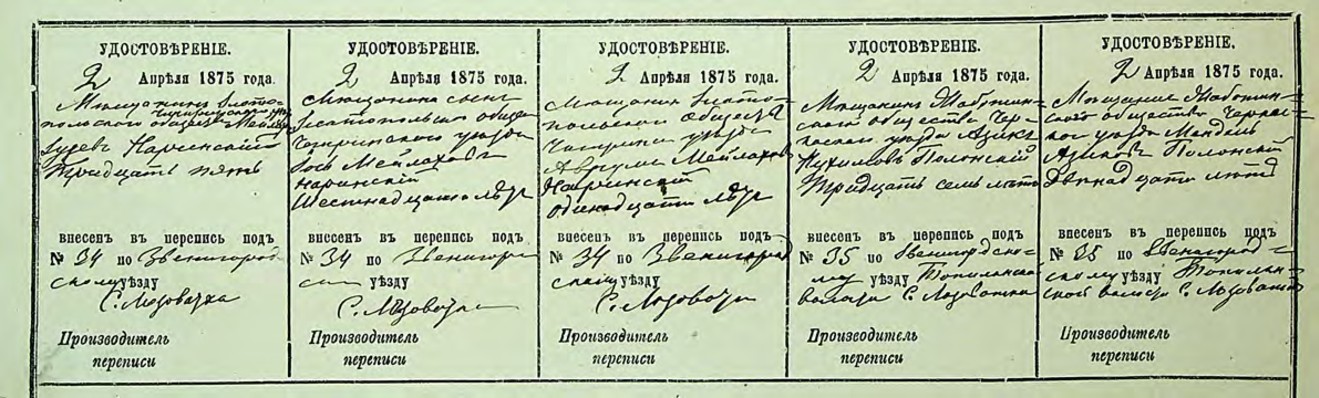 УДОСТОВѢРЕНІЕ.
2 Апрѣля 1875 года.
Мещанинъ Злато-
польского общества Чигиринского Мейлах
Наринскій
Тридцать пять
внесенъ въ перепись подъ
№ 34 по Звенигород
скому уѣзду
С. Лозоватка
Производитель
переписи
УДОСТОВѢРЕНІЕ.
2 Апрѣля 1875 года.
Мещанина сынъ
Златопольского обще
Чигиринского уезда
Іось Мейлаховъ
Наринскій
Шестнадцать лѣтъ
внесенъ въ перепись подъ
№ 34 по Звенигоро
уѣзду
С. Лозоватка
Производитель
переписи
УДОСТОВѢРЕНІЕ.
2 Апрѣля 1875 года.
Мещанин Злато-
польского Общества
Чигирин уезда
Аврумъ Мейлахов
Наринскій
одинадцать лѣтъ
внесенъ въ перепись подъ
№ 34 по Звенигород
скому уѣзду
С. Лозоватк
Производитель
переписи
УДОСТОВѢРЕНІЕ.
2 Апрѣля 1875 года.
Мещанинъ Жаботин-
ского общества Чер-
каского уезда Азикъ
Нухимовъ Полонскій
Тридцать семь летъ
внесенъ въ перепись подъ
№ 35 по Звенигородско-
му уѣзду Топильской
волости С. Лозоватка
Производитель
переписи
УДОСТОВѢРЕНІЕ.
2 Апрѣля 1875 года.
Мещанинъ Жаботин-
ского общества Черкас-
ког уезда Мендель
Азиковъ Полонскій
Двенадцать летъ
внесенъ въ перепись подъ
№ 35 по Звенигород-
скому уѣзду Топиль-
ской волости С. Лозоватк
Производитель
переписи